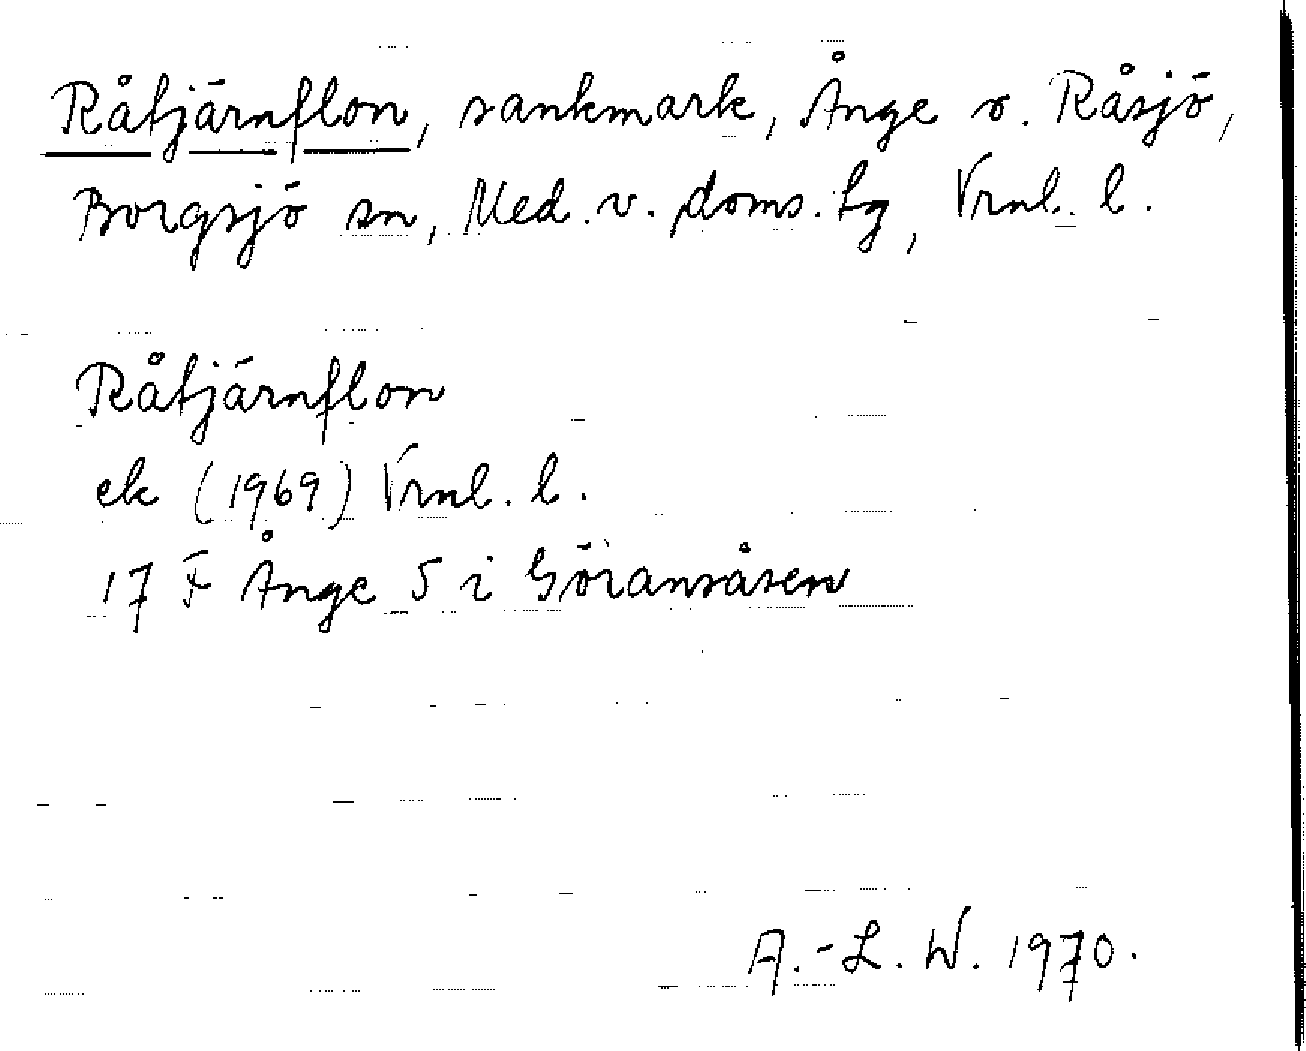 Råtjärnflon, sankmark, Ånge o. Råsjö,
Borgsjö sn, Med. v. doms. tg, Vrnl. l.
Råtjärnflon
ek (1969) Vrnl. l.
17 F Ånge 5 i Göransåsen
A.-L. W. 1970.